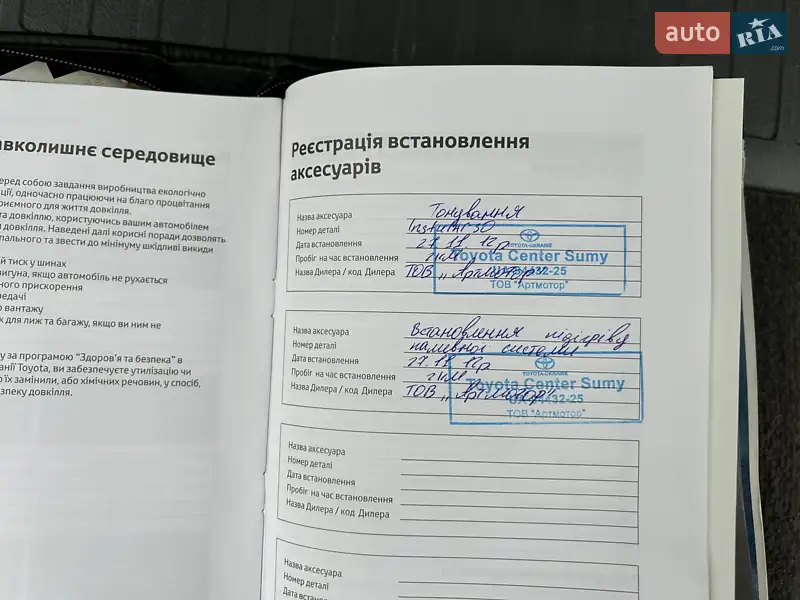 auto RIA .com
авколишнє середовище
еред собою завдання виробництва екологічно
ції, одночасно працюючи на благо процвітання
риємного для життя довкілля.
та довкіллю, користуючись вашим автомобілем
и довкілля. Наведені далі корисні поради дозволять
пального та звести до мінімуму шкідливі викиди
й тиск у шинах
вигуна, якщо автомобіль не рухається
ного прискорення
редачі
о вантажу
к для лиж та багажу, якщо ви ним не
у за програмою "Здоров'я та безпека" в
анії Toyota, ви забезпечуєте утилізацію чи
о їх замінили, або хімічних речовин, у спосіб,
зпеку довкілля.
Реєстрація встановлення
аксесуарів
Назва аксесуара Тонування
Номер деталі
Дата встановлення 27.11.12р
Пробіг на час встановлення 2 км
Назва Дилера / код Дилера ТОВ „Артмотор"
TOYOTA-UKRAINE
Toyota Center Sumy
32-25
ТОВ "Артмотор"
Назва аксесуара Встановлення підігріву
Номер деталі паливної системи
Дата встановлення 27.11.12р
Пробіг на час встановлення 2 км
Назва Дилера / код Дилера ТОВ „Артмотор"
TOYOTA-UKRAINE
Toyota Center Sumy
432-25
ТОВ "Артмотор"
Назва аксесуара
Номер деталі
Дата встановлення
Пробіг на час встановлення
Назва Дилера / код Дилера
Назва аксесуара
Номер деталі
Дата встано